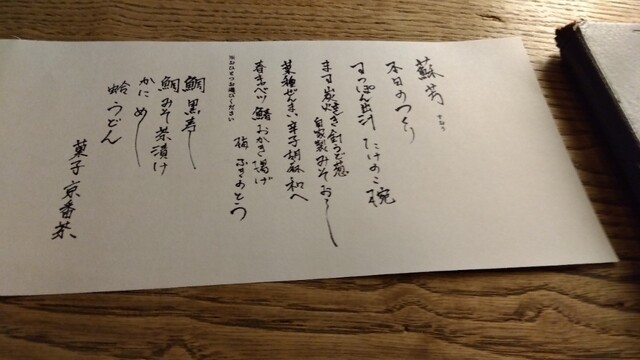 蘇芳 すおう
本日のつくり
すっぽん出汁 たけのこ椀
ます炭焼き 針うど葱
自家製みそおろし
菜種ぜんまい辛子胡麻和へ
春キャベツ 鰆おかき揚げ
梅 ふきのとう
※おひとつお選びください
鯛黒寿し
鯛みそ茶漬け
かにめし
蛤うどん
菓子 京番茶